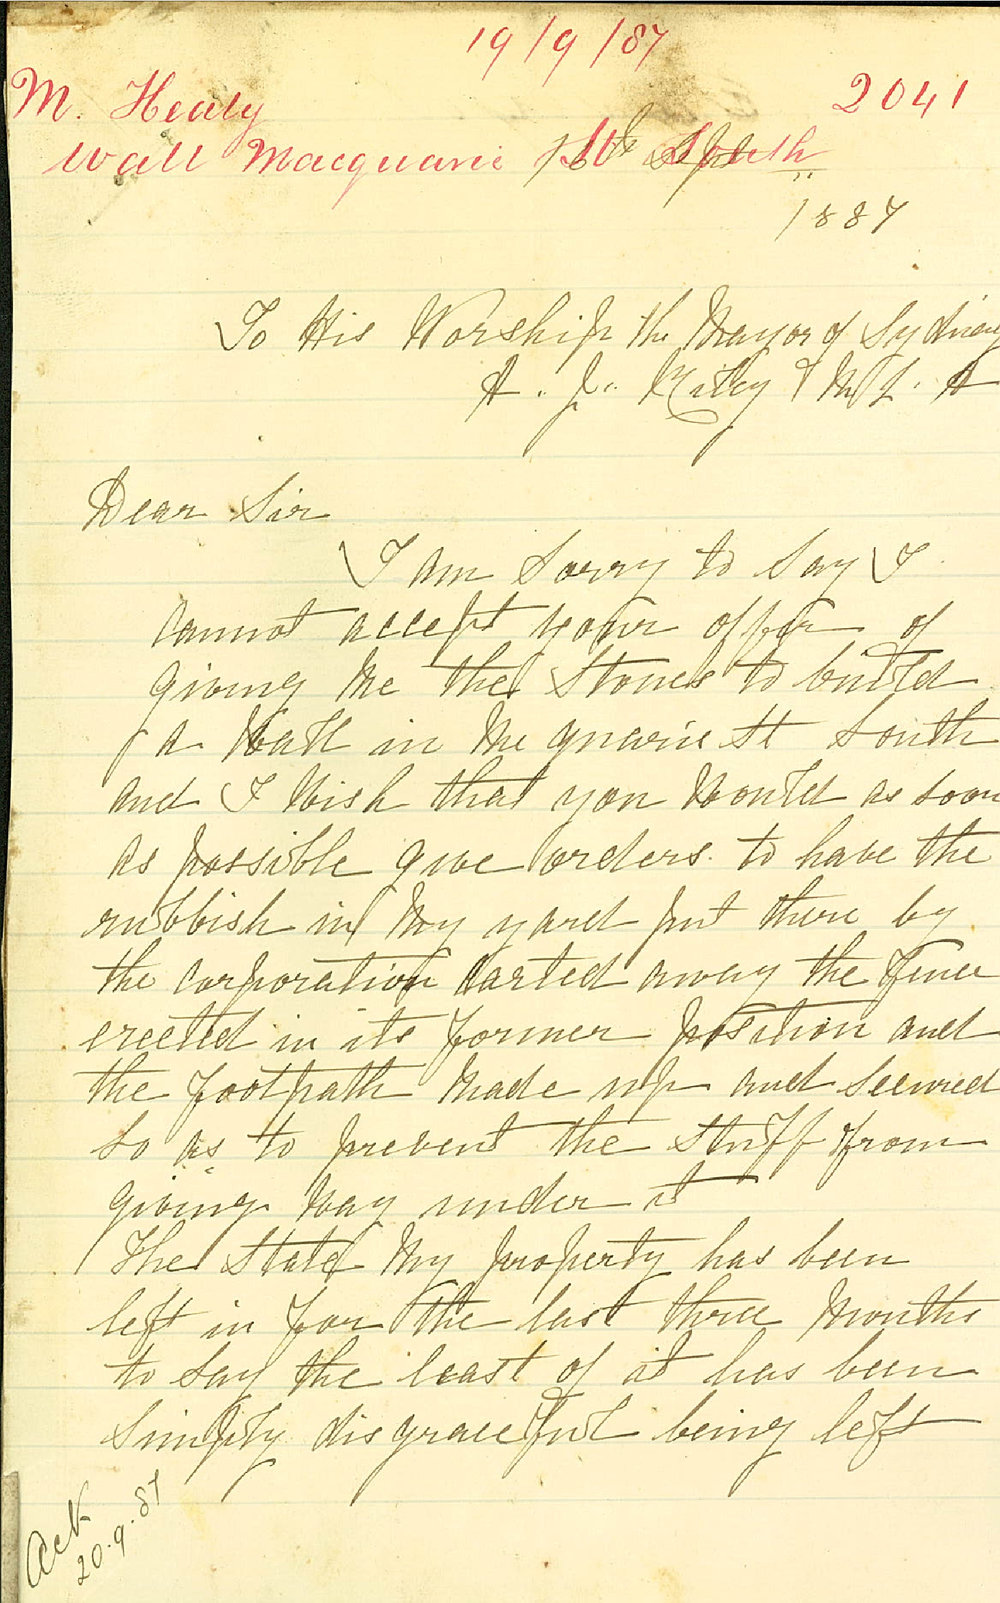 19/9/87
M. Healy
2041
Wall Macquarie St. South
16th Sept
1887
To His Worship the Mayor of Sydney
A. J. Riley M L. A
Dear Sir
I am Sorry to Say I
Cannot accept your offer of
giving Me the Stones to build
a Wall in Mcquarie St South
and I Wish that you Would as soon
as possible give orders to have the
rubbish in My yard put there by
the Corporation Carted away the Fence
erected in its former position and
the footpath Made up and Secured
So as to prevent the Stuff from
giving Way under it
The State My property has been
left in for the last three Months
to Say the least of it has been
Simply disgraceful being left
Ack
20.9.87